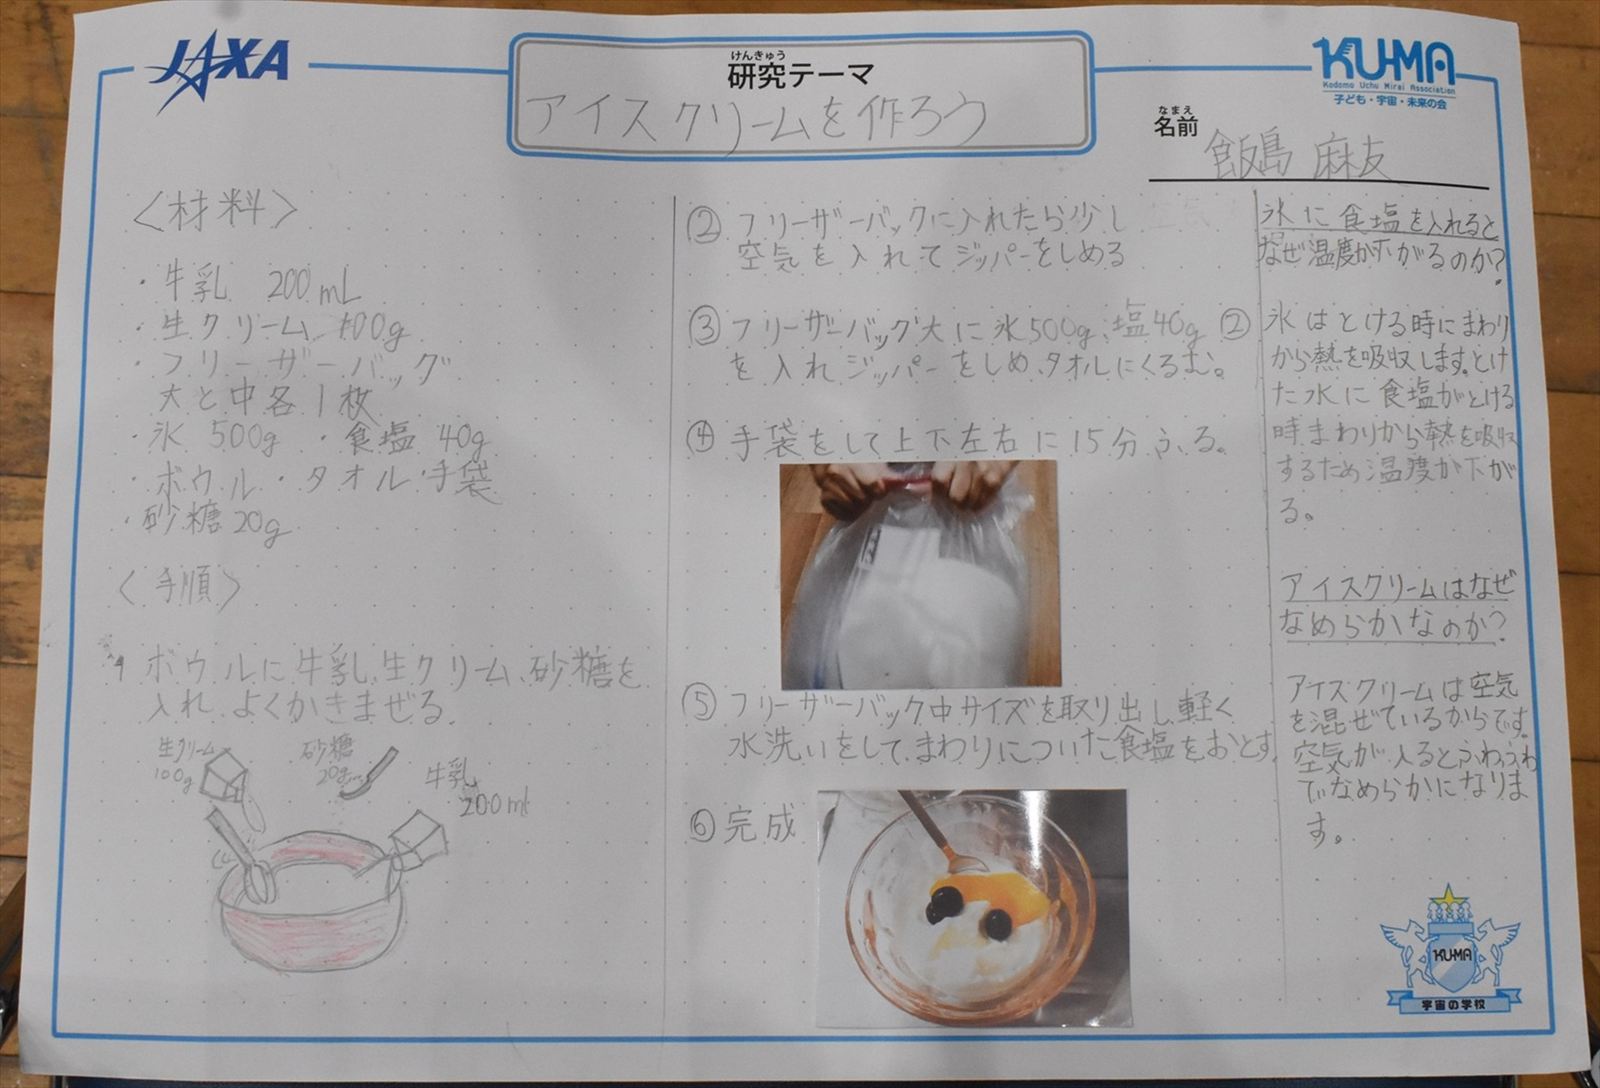 JAXA
けんきゅう
研究テーマ
アイスクリームを作ろう
KU-MA
Kodomo Uchu Mirai Association
子ども・宇宙・未来の会
なまえ
名前
飯島 麻友
〈材料〉
・牛乳 200mL
・生クリーム 100g
・フリーザーバッグ
大と中各1枚
・氷 500g ・食塩 40g
・ボウル・タオル・手袋
・砂糖20g
〈手順〉
1 ボウルに牛乳、生クリーム、砂糖を
入れ、よくかきまぜる
生クリーム
100g
砂糖
20g
牛乳
200ml
② フリーザーバックに入れたら少し
空気を入れてジッパーをしめる
③ フリーザーバッグ大に氷500g、塩40g
を入れジッパーをしめ、タオルにくるむ。
④ 手袋をして上下左右に15分ふる。
⑤ フリーザーバック中サイズを取り出し軽く
水洗いをしてまわりについた食塩をおとす
⑥ 完成
氷に食塩を入れると
なぜ温度が下がるのか?
② 氷はとける時にまわり
から熱を吸収します。とけ
た水に食塩がとける
時まわりから熱を吸収
するため温度が下が
る。
アイスクリームはなぜ
なめらかなのか?
アイスクリームは空気
を混ぜているからです。
空気が入るとふわふわ
でなめらかになりま
す。
KU-MA
宇宙の学校